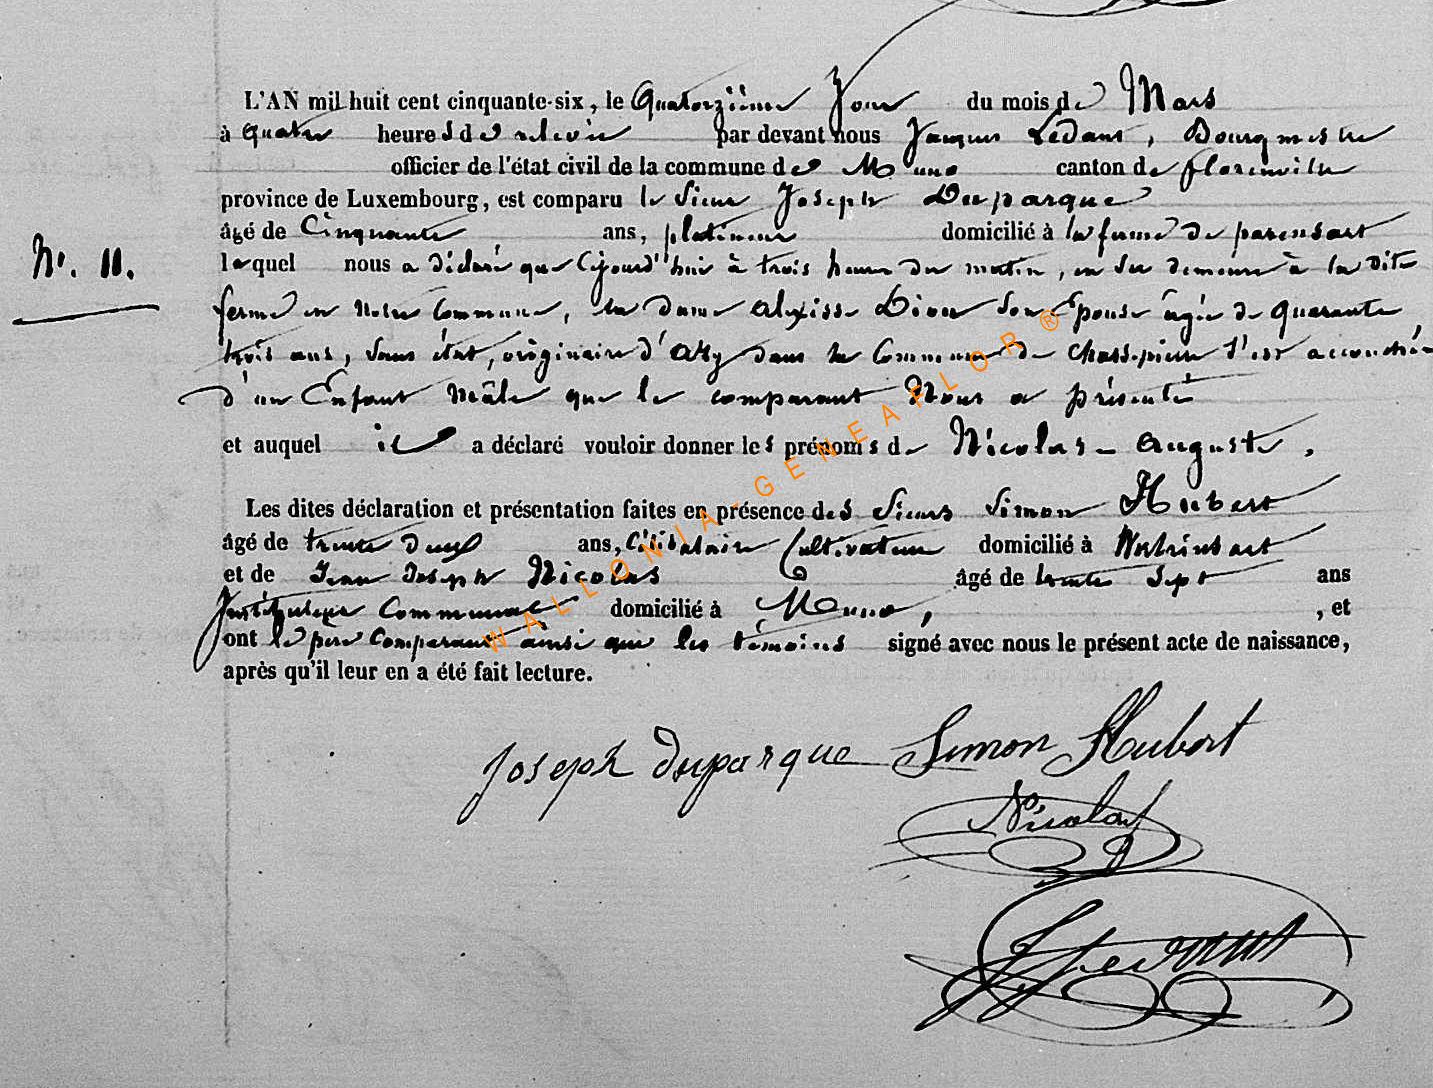 L'AN mil huit cent cinquante-six, le Quatorzième Jour du mois de Mars
à Quatre heures de relevée par devant nous Jacques Ledant, Bourgmestre
officier de l'état civil de la commune de Muno canton de florenville
province de Luxembourg, est comparu le Sieur Joseph Duparque
âgé de Cinquante ans, platineur domicilié à la ferme de parensart
lequel nous a déclaré que Cejourd'hui à trois heures du matin, en sa demeure à la dite
N°. 11.
ferme en notre Commune, la dame alexisse Dion Son Epouse âgée de quarante
trois ans, Sans état, originaire d'Azy dans la Commune de Chassepierre S'est accouchée
d'un Enfant Mâle que le comparant Nous a présenté
et auquel il a déclaré vouloir donner les prénoms de Nicolas-auguste.
Les dites déclaration et présentation faites en présence des Sieurs Simon Hubert
âgé de trente deux ans, Célibataire Cultivateur domicilié à Watrinsart
et de Jean Joseph Nicolas âgé de trente Sept ans
Instituteur Communal domicilié à Muno, , et
ont le père Comparant ainsi que les témoins signé avec nous le présent acte de naissance,
après qu'il leur en a été fait lecture.
Joseph duparque Simon Hubert
Nicolas
JLedant
WALLONIA-GENEAFLOR®